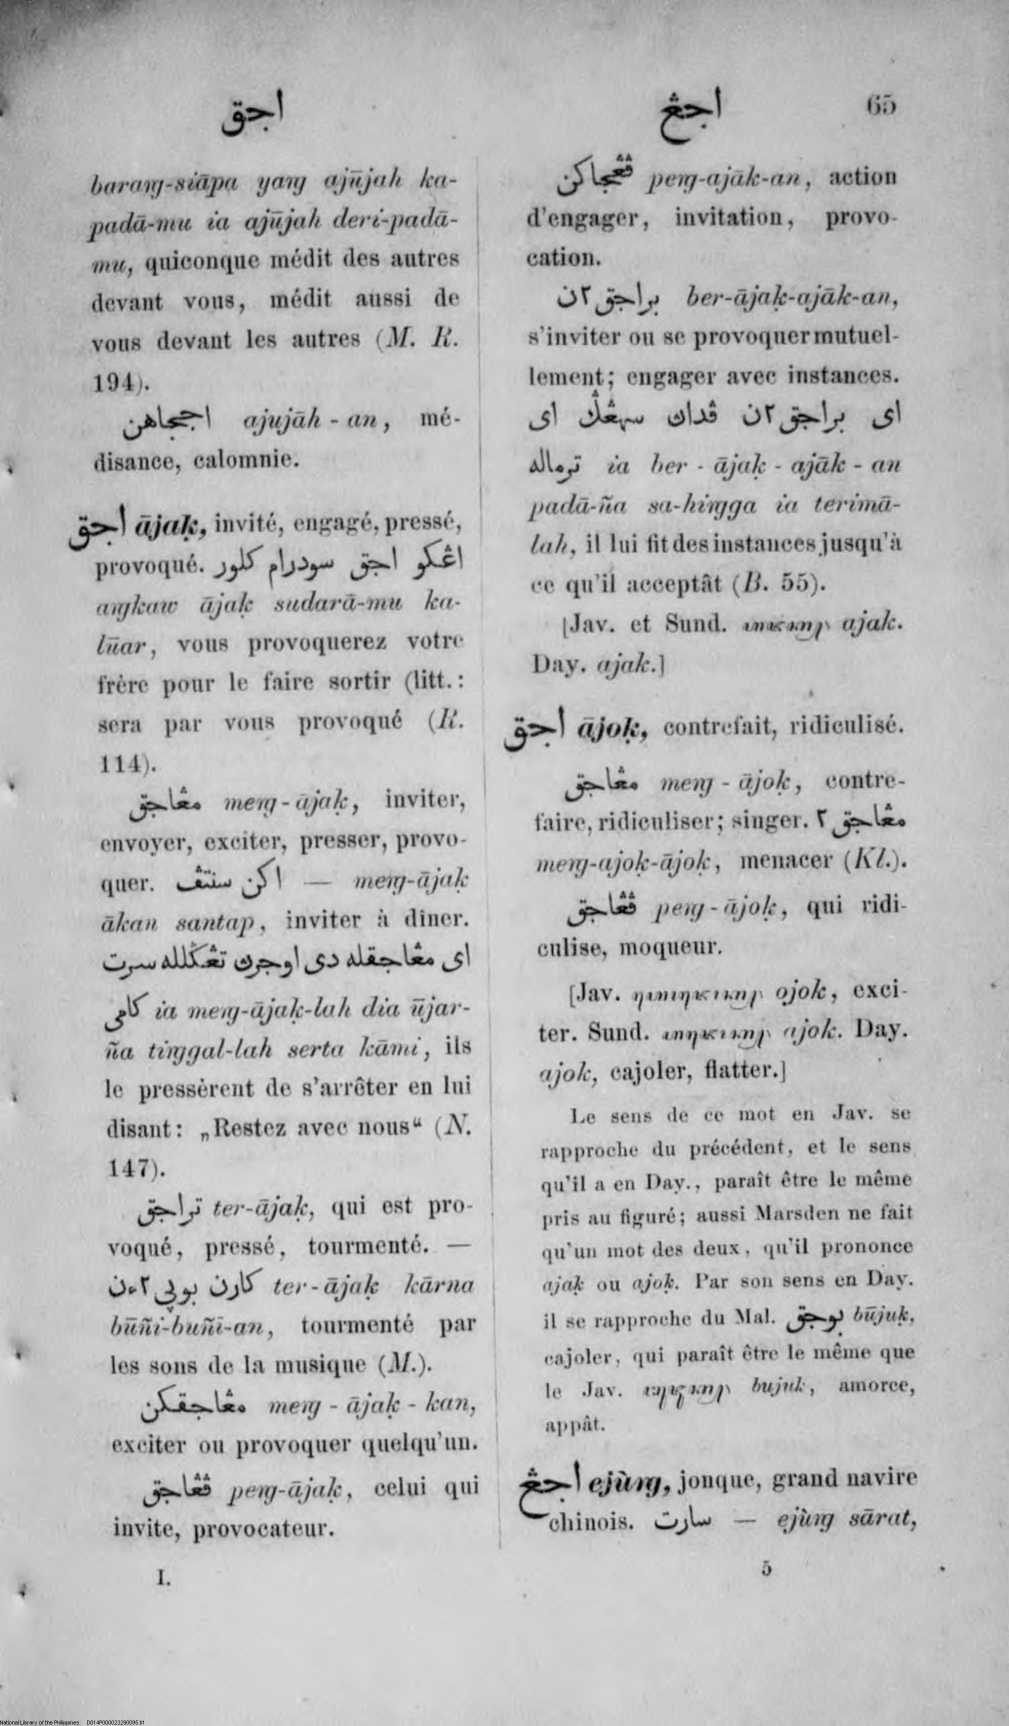 اجق
اجڠ
65
barang-siāpa yang ajūjah ka-
padā-mu ia ajūjah deri-padā-
mu, quiconque médit des autres
devant vous, médit aussi de
vous devant les autres (M. R.
194).
اججاهن ajujāh - an, mé-
disance, calomnie.
اجق ājaḳ, invité, engagé, pressé,
provoqué. اڠكو اجق سودرام كلور
angkaw ājaḳ sudarā-mu ka-
lūar, vous provoquerez votre
frère pour le faire sortir (litt.:
sera par vous provoqué (R.
114).
مڠاجق meng-ājaḳ, inviter,
envoyer, exciter, presser, provo-
quer. اكن سنتڤ — meng-ājaḳ
ākan santap, inviter à dîner.
اى مڠاجقله دى اوجرڽ تڠݢلله سرت
كامي ia meng-ājaḳ-lah dia ūjar-
ña tinggal-lah serta kāmi, ils
le pressèrent de s'arrêter en lui
disant: „Restez avec nous“ (N.
147).
تراجق ter-ājaḳ, qui est pro-
voqué, pressé, tourmenté. —
كارن بوڽي ٢ءن ter-ājaḳ kārna
būñi-buñi-an, tourmenté par
les sons de la musique (M.).
مڠاجقكن meng - ājaḳ - kan,
exciter ou provoquer quelqu'un.
ڤڠاجق peng-ājaḳ, celui qui
invite, provocateur.
I.
ڤڠجاكن peng-ajāk-an, action
d'engager, invitation, provo-
cation.
براجق ٢ن ber-ājaḳ-ajāk-an,
s'inviter ou se provoquer mutuel-
lement; engager avec instances.
اى براجق ٢ن ڤداڽ سهڠݢ اى
ترماله ia ber - ājaḳ - ajāk - an
padā-ña sa-hingga ia terimā-
lah, il lui fit des instances jusqu'à
ce qu'il acceptât (B. 55).
[Jav. et Sund. ajak.
Day. ajak.]
اجق ājoḳ, contrefait, ridiculisé.
مڠاجق meng - ājoḳ, contre-
faire, ridiculiser; singer. مڠاجق ٢
meng-ajoḳ-ājoḳ, menacer (Kl.).
ڤڠاجق peng-ājoḳ, qui ridi-
culise, moqueur.
[Jav. ojok, exci-
ter. Sund. ajok. Day.
ajok, cajoler, flatter.]
Le sens de ce mot en Jav. se
rapproche du précédent, et le sens
qu'il a en Day., paraît être le même
pris au figuré; aussi Marsden ne fait
qu'un mot des deux, qu'il prononce
ajaḳ ou ajoḳ. Par son sens en Day.
il se rapproche du Mal. بوجق būjuḳ,
cajoler, qui paraît être le même que
le Jav. bujuk, amorce,
appât.
اجڠ ejùng, jonque, grand navire
chinois. سارت — ejùng sārat,
5
National Library of the Philippines